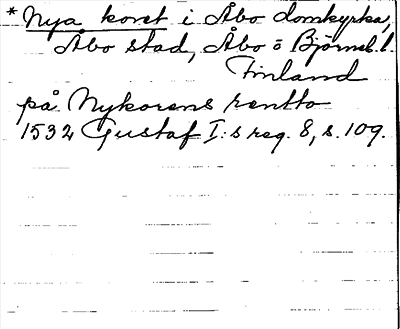 * Nya koret i Åbo domkyrka,
Åbo stad, Åbo o Björneb. l.
Finland
på Nykorens rentto
1532 Gustaf I:s reg. 8, s. 109.